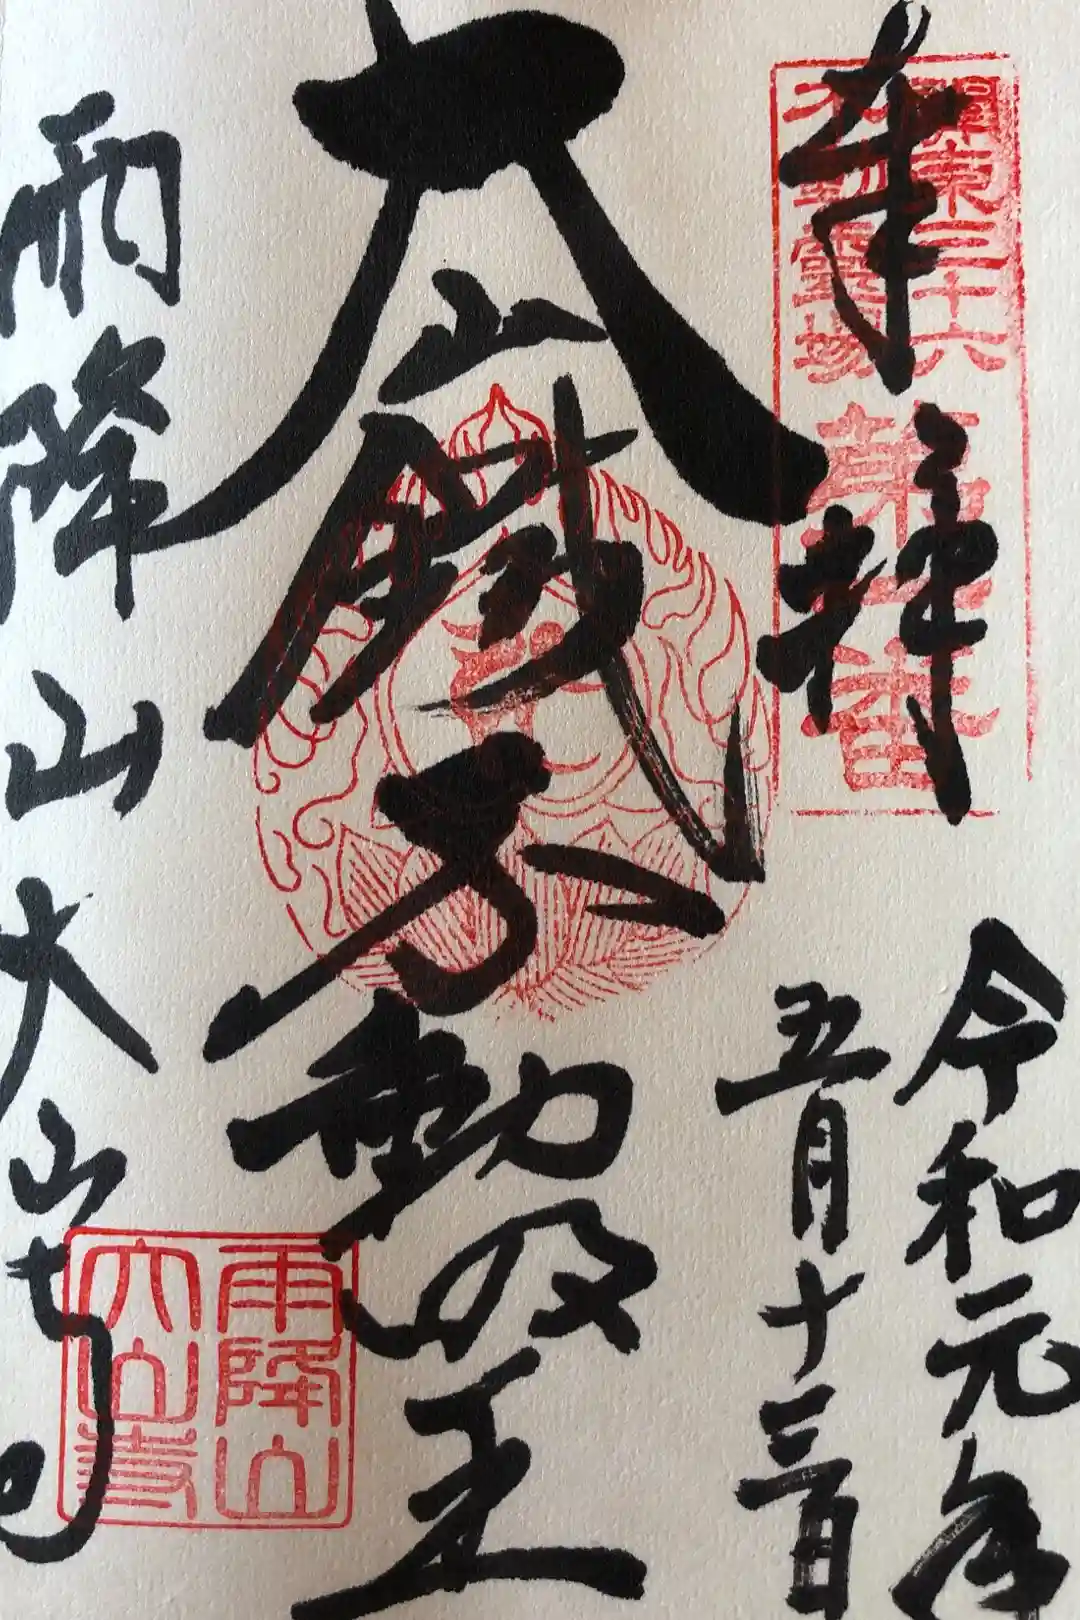 奉拝
關東三十六
不動靈場
第一番
令和元年
五月十三日
大山鐵不動明王
雨降山大山寺
雨降山
大山寺